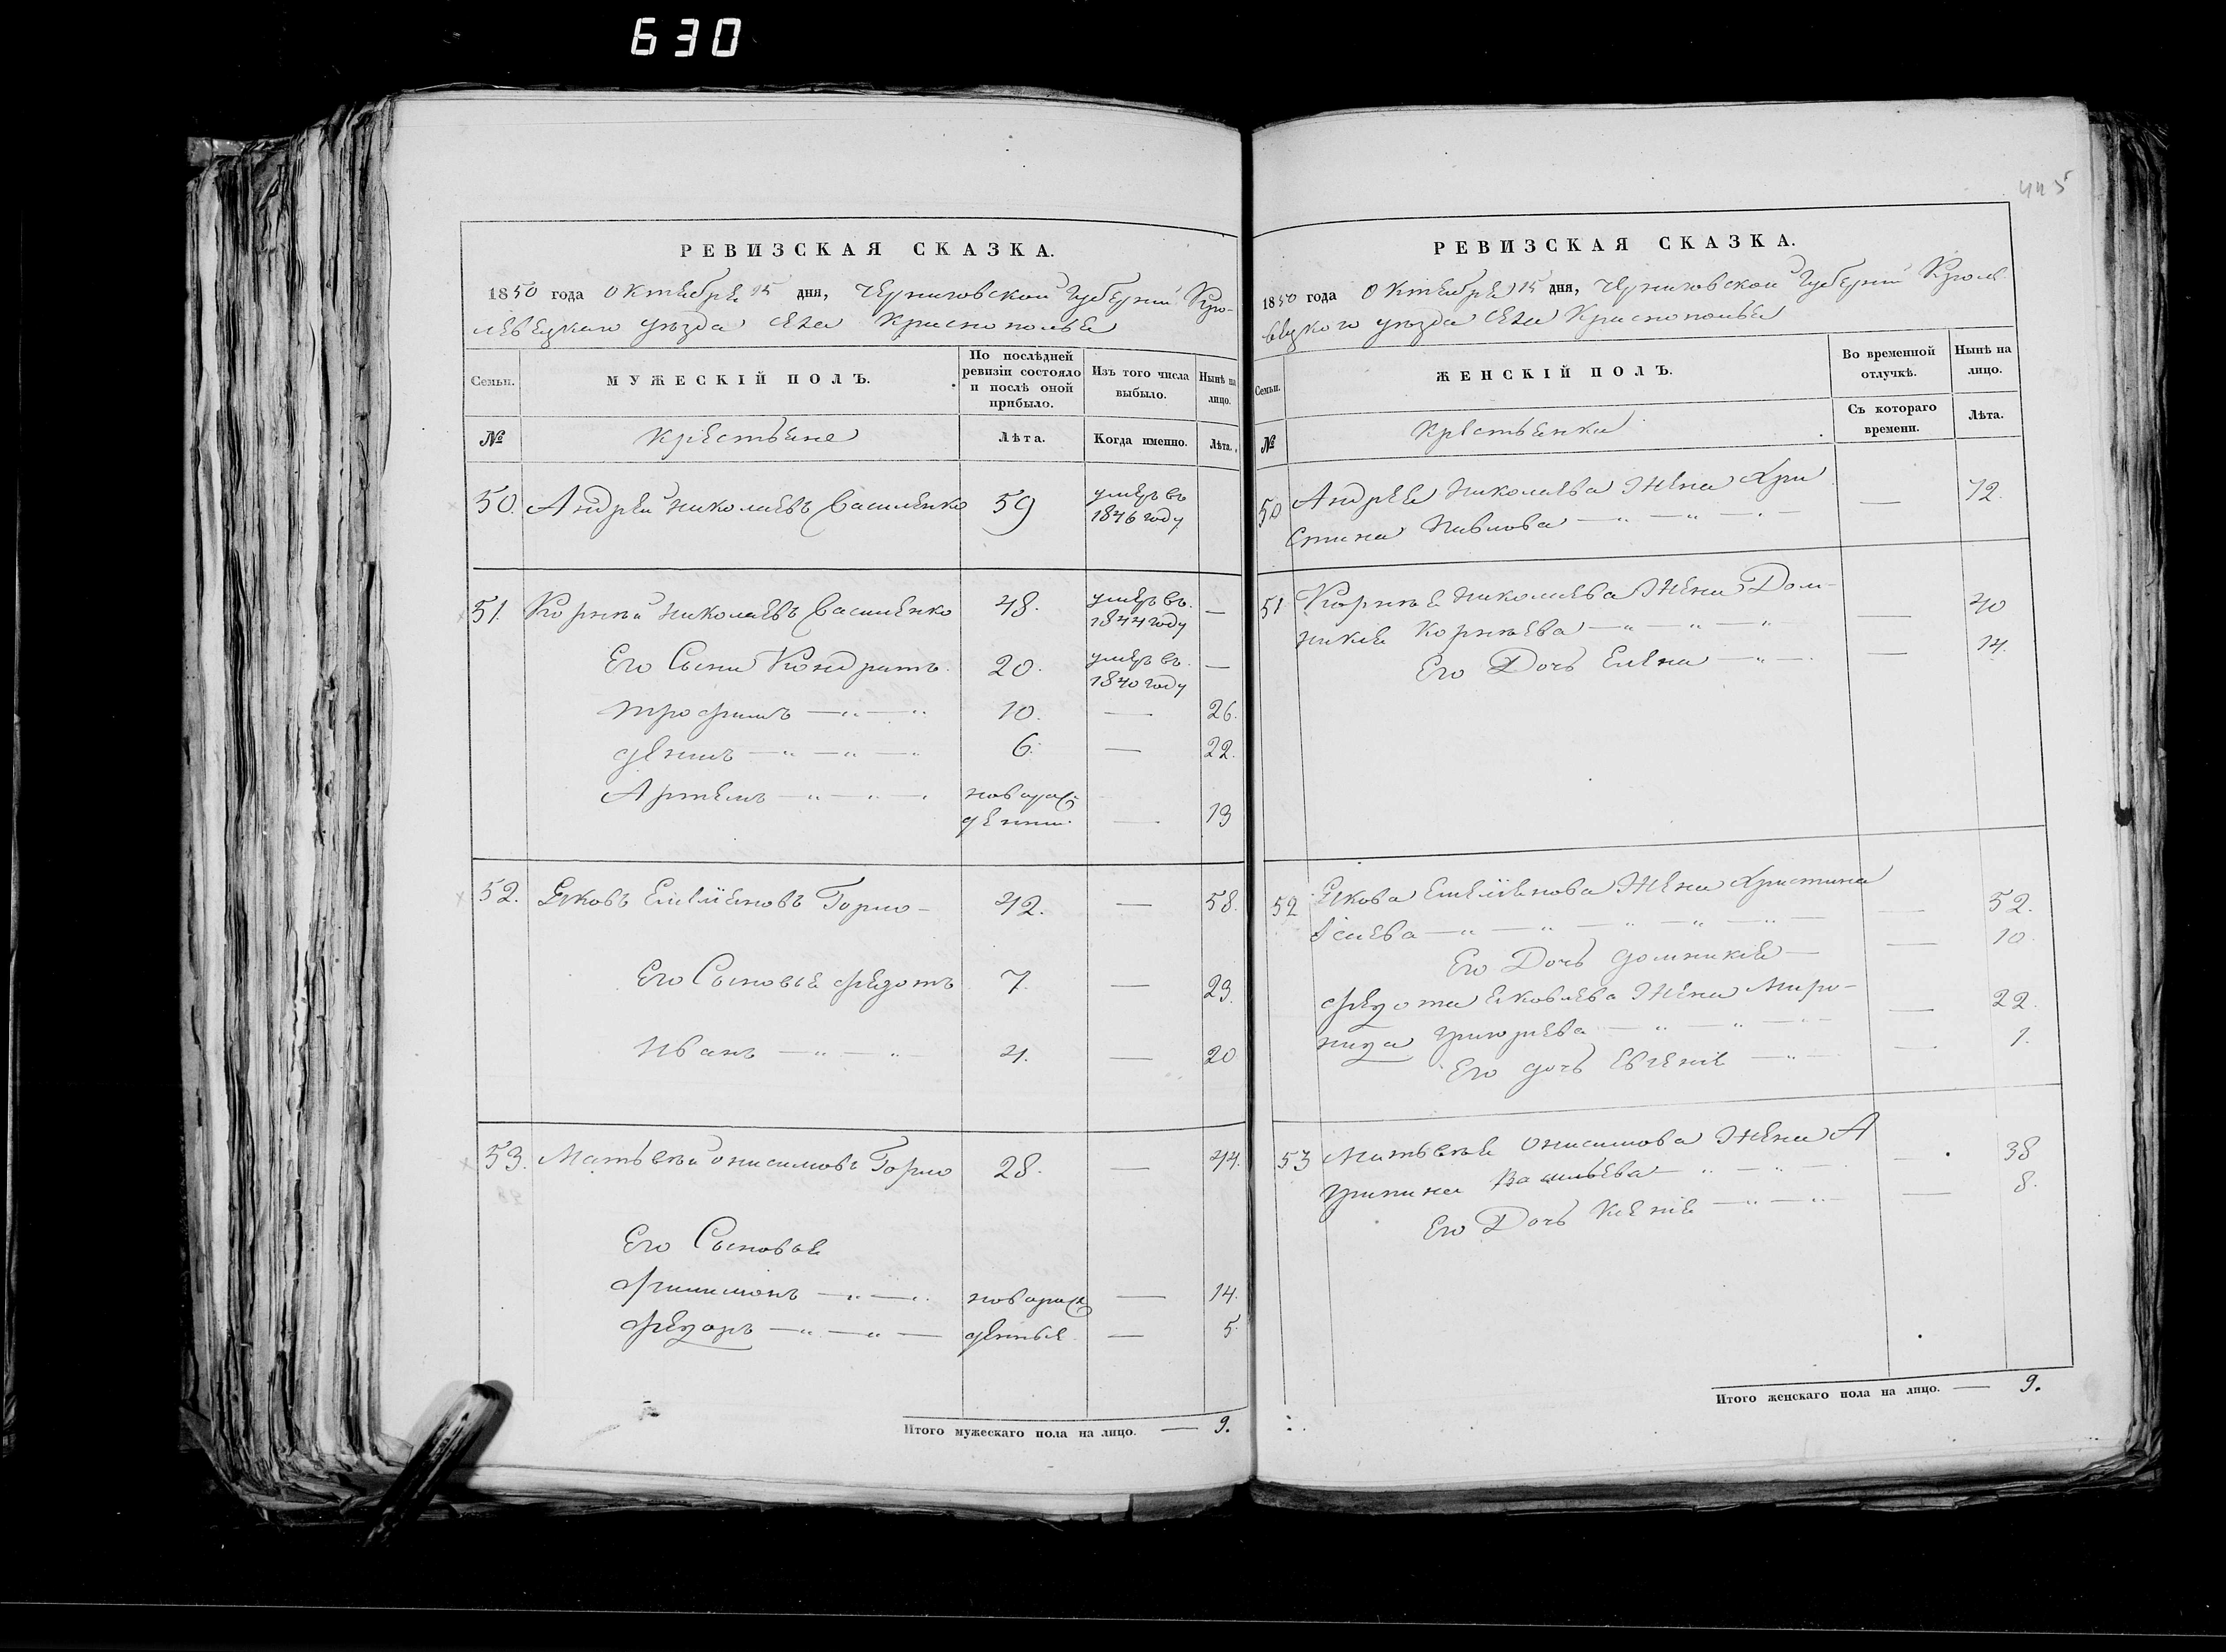 630
445
РЕВИЗСКАЯ СКАЗКА.
1850 года Октебре 15 дня, Черниговской Губерніи Кро-
левецкаго уезда Села Краснополье
Семьи.
МУЖЕСКІЙ ПОЛЪ.
По послѣдней ревизіи состояло и послѣ оной прибыло.
Изъ того числа выбыло.
Нынѣ на лицо.
№
Крестьяне
Лѣта.
Когда именно.
Лѣта.
50. Андрей Николаевъ Василенко 59 умеръ въ 1846 году
51. Корнѣй Николаевъ Василенко 48. умеръ въ 1844 году —
Его Сыни Кондратъ 20. умеръ въ 1840 году —
трофимъ — „ — „ 10. — 26.
денисъ — „ — „ — „ 6. — 22.
Артемъ — „ — „ — новорож-
денни. — 13
52. Яковъ Емелiяновъ Горло — 42. — 58.
Его Сыновья федотъ 7. — 23.
Иванъ — „ — „ 4. — 20
53. Матвѣй онисимовъ Горло 28. — 44.
Его Сыновья
филимонъ — „ — „ новорож — 14.
федоръ — „ — „ — денные — 5.
Итого мужескаго пола на лицо. — 9.
РЕВИЗСКАЯ СКАЗКА.
1850 года Октебре 15 дня, Черниговской Губерніи Кроле-
вецкого уезда Села Краснополье
Семьи.
ЖЕНСКІЙ ПОЛЪ.
Во временной отлучкѣ.
Нынѣ на лицо.
№
Крестьянки
Съ котораго времени.
Лѣта.
50 Андрея Николаева Жена Хри
стина Павлова — „ — „ — „ — — 72.
51 Корнѣя Николаева Жена Дом-
никiя Корнѣева — „ — „ — „ — 40
Его Дочь Елена — „ — — 14.
52 Якова Емелiянова Жена Христина
Iсаева — „ — „ — „ — „ — „ — — 52.
Его Дочь домникiя — — 10
федота Яковлева Жена Миро-
нида григорiева — „ — „ — „ — 22.
Его дочь Евгенiя — „ — — 1.
53 Матвѣя онисимова Жена А
грипина Васильева — „ — „ — — 38
Его Дочь Ксенiя — „ — „ — — 8.
Итого женскаго пола на лицо. — 9.